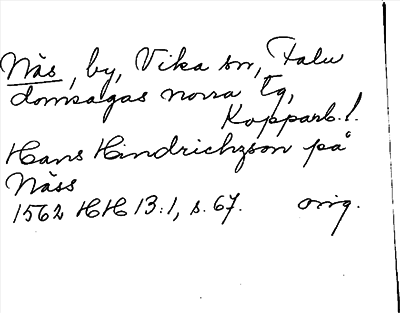 Näs, by, Vika sn, Falu
domsagas norra tg,
Kopparb. l.
Hans Hindrichzson på
Näss
1562 HH 13:1, s. 67. orig.